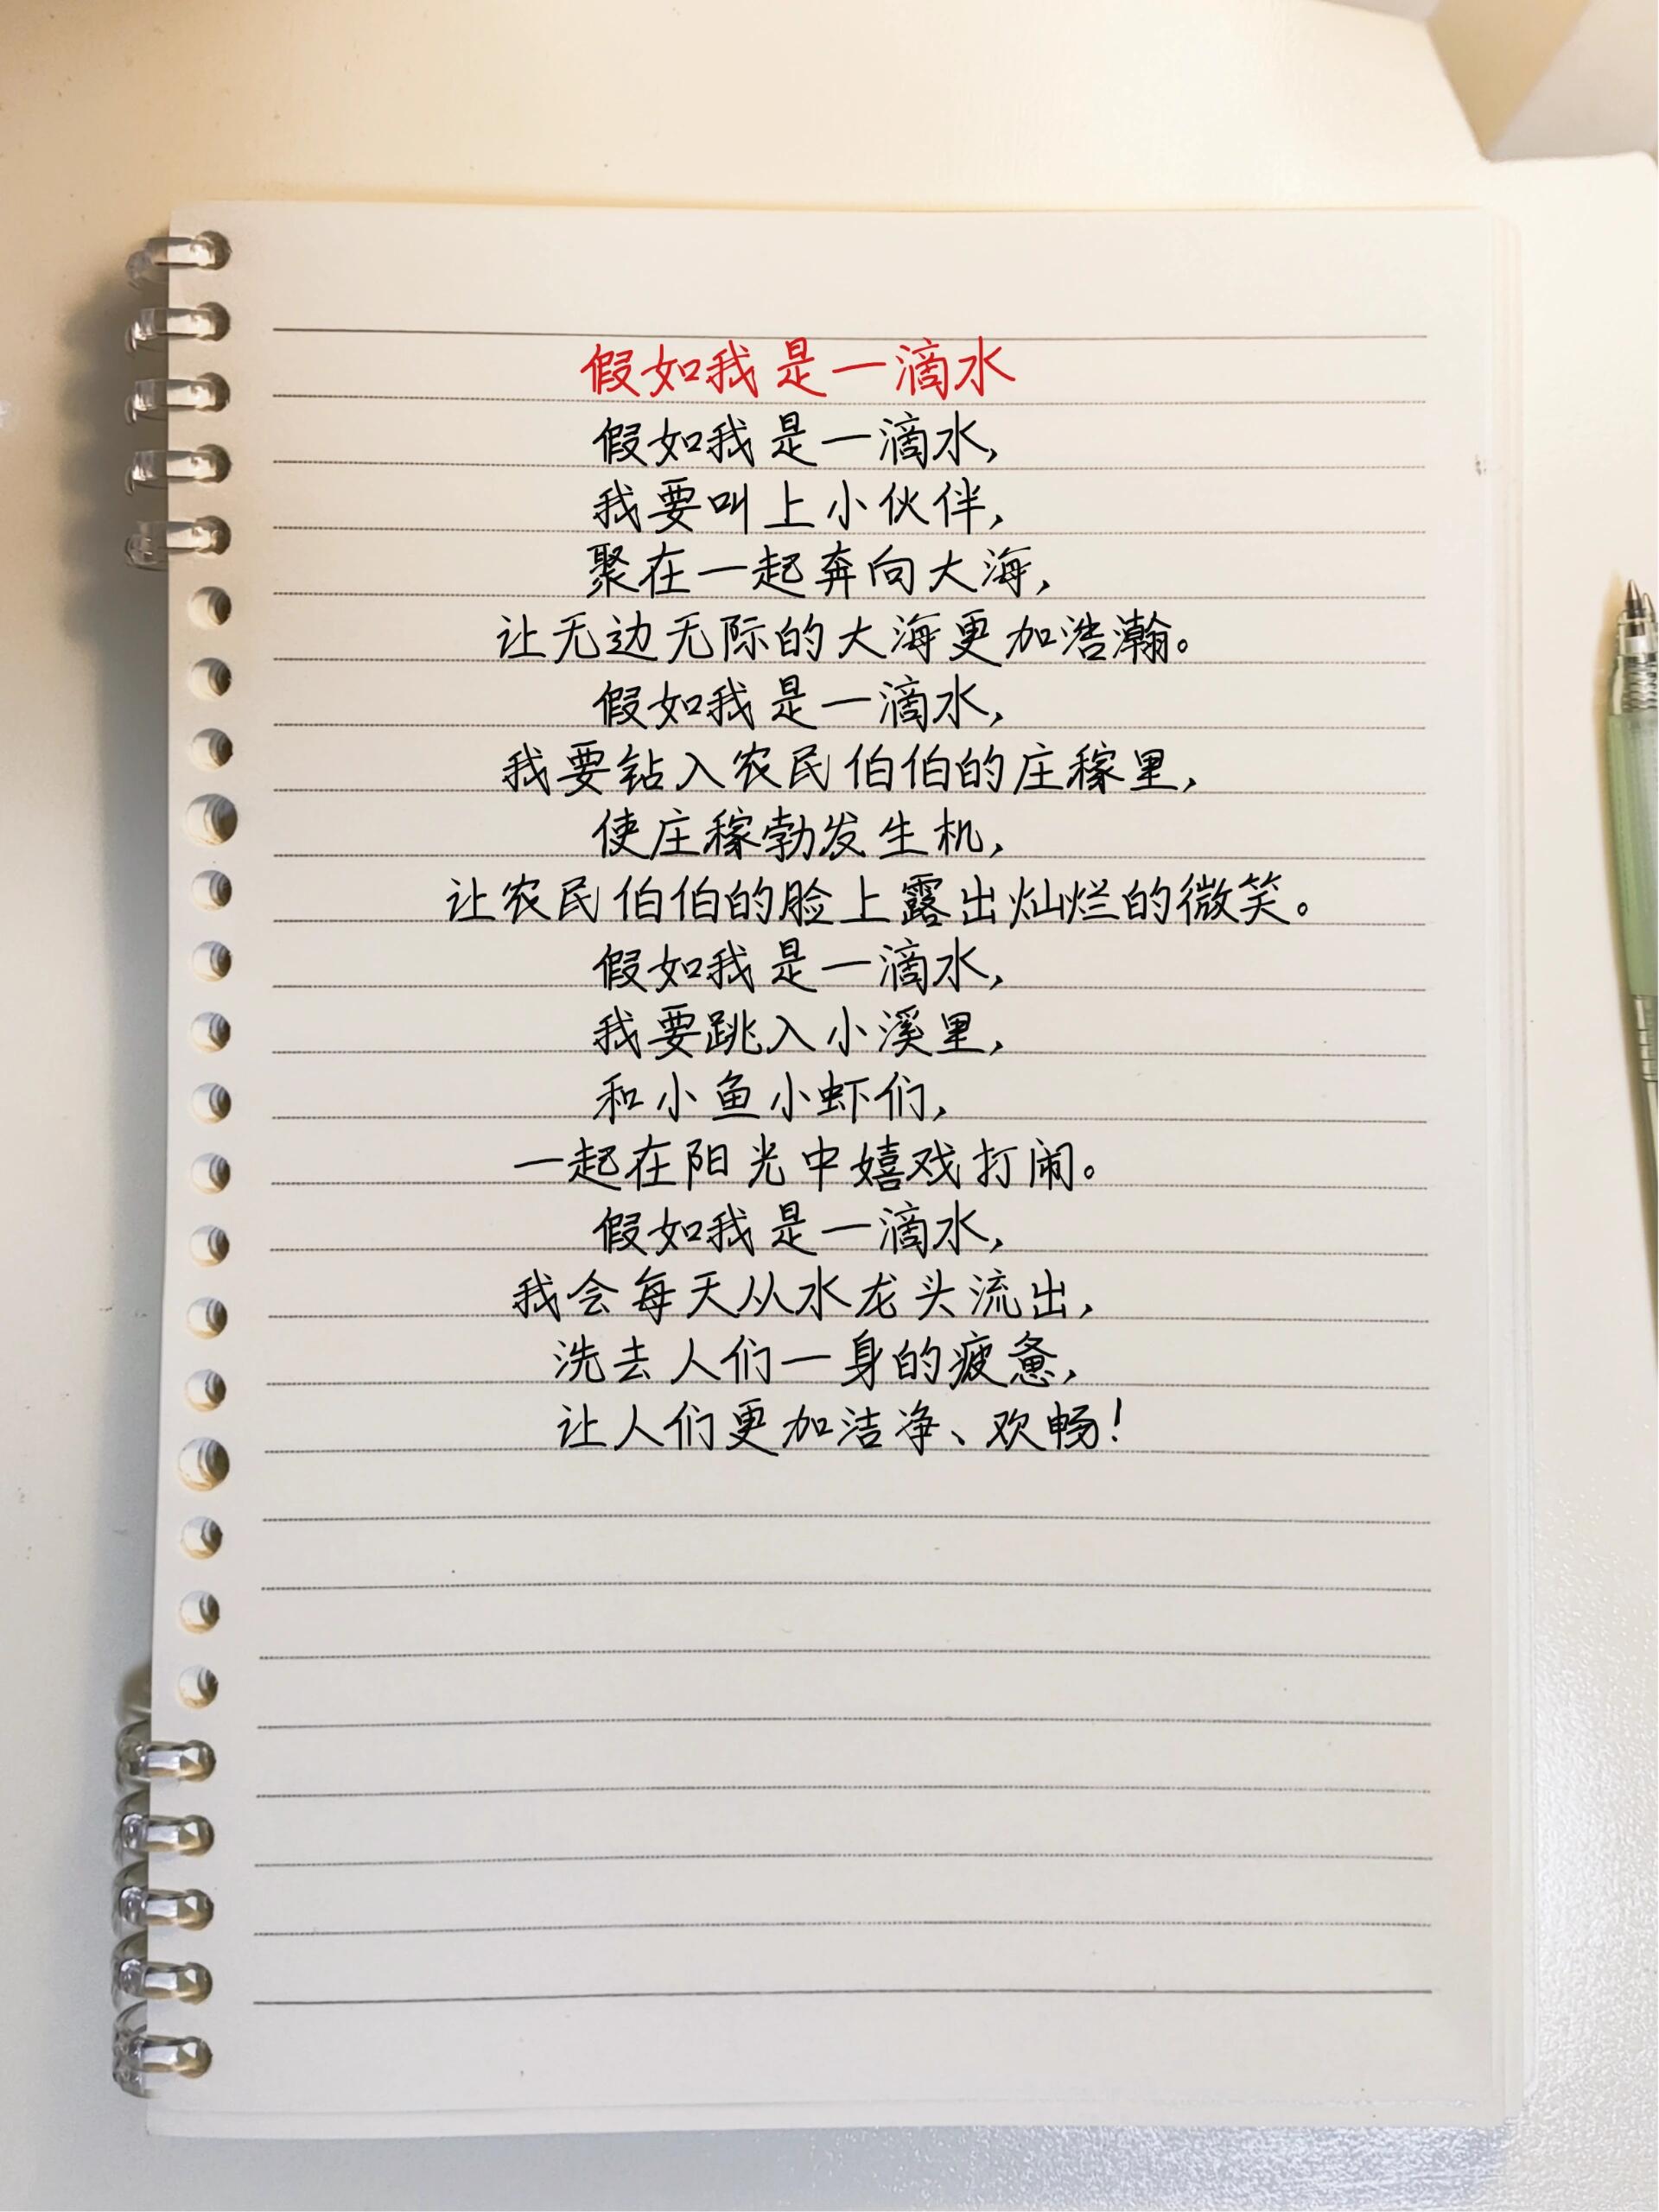 假如我是一滴水
假如我是一滴水,
我要叫上小伙伴,
聚在一起奔向大海,
让无边无际的大海更加浩瀚。
假如我是一滴水,
我要钻入农民伯伯的庄稼里,
使庄稼勃发生机,
让农民伯伯的脸上露出灿烂的微笑。
假如我是一滴水,
我要跳入小溪里,
和小鱼小虾们,
一起在阳光中嬉戏打闹。
假如我是一滴水,
我会每天从水龙头流出,
洗去人们一身的疲惫,
让人们更加洁净、欢畅!